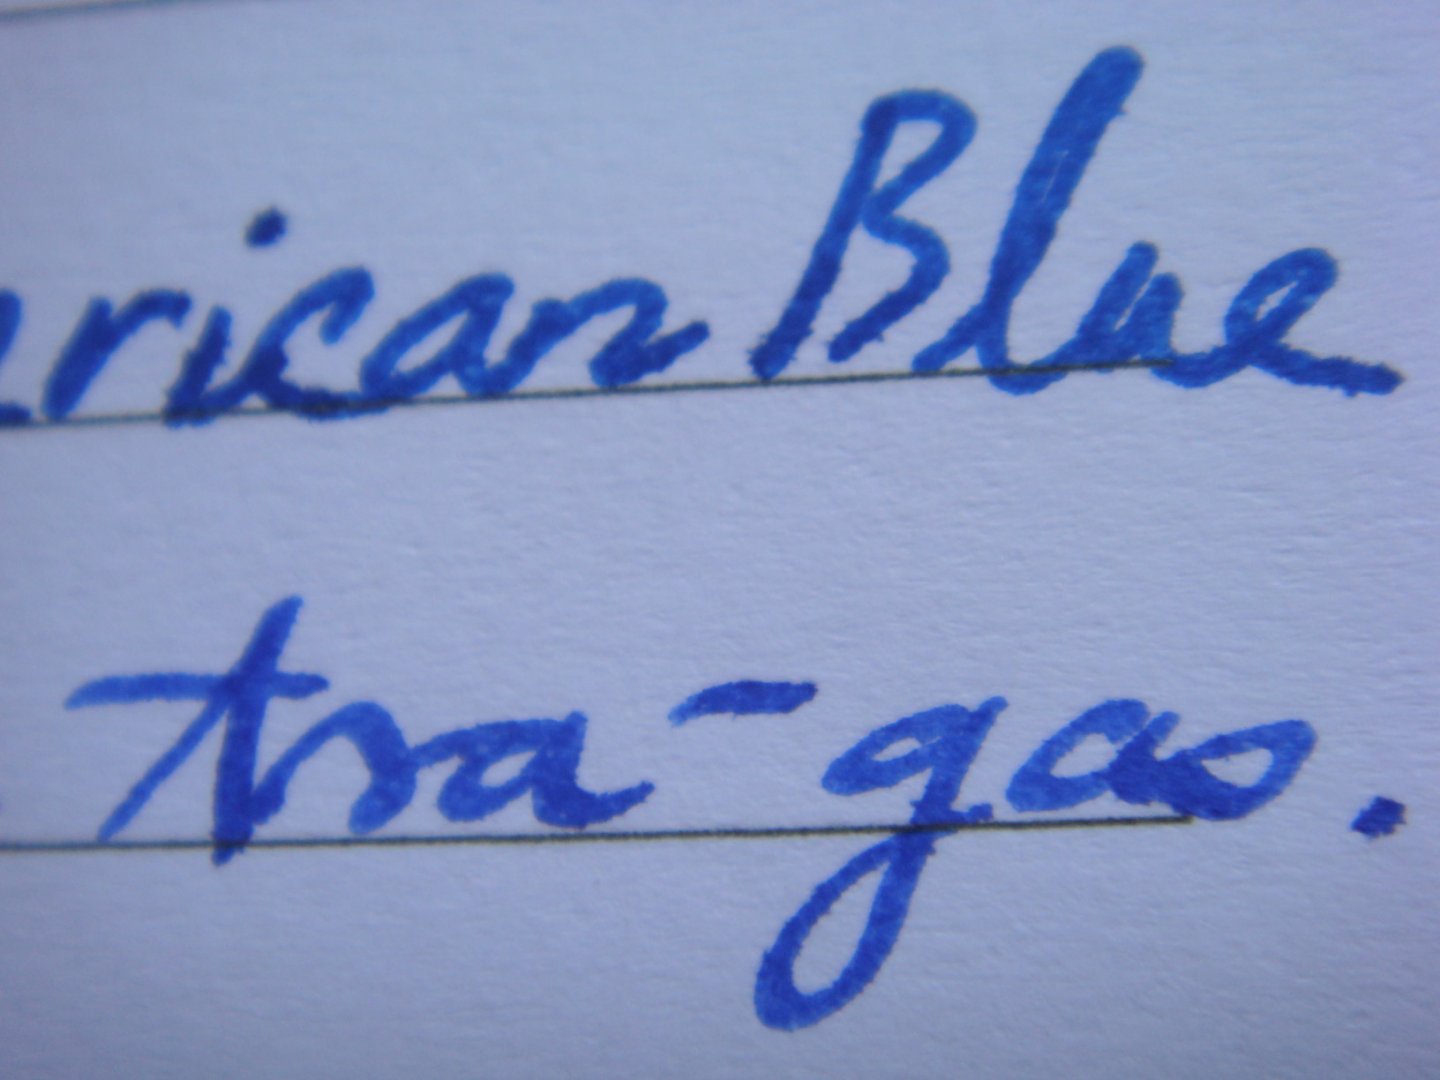 erican Blue
tra-gas.